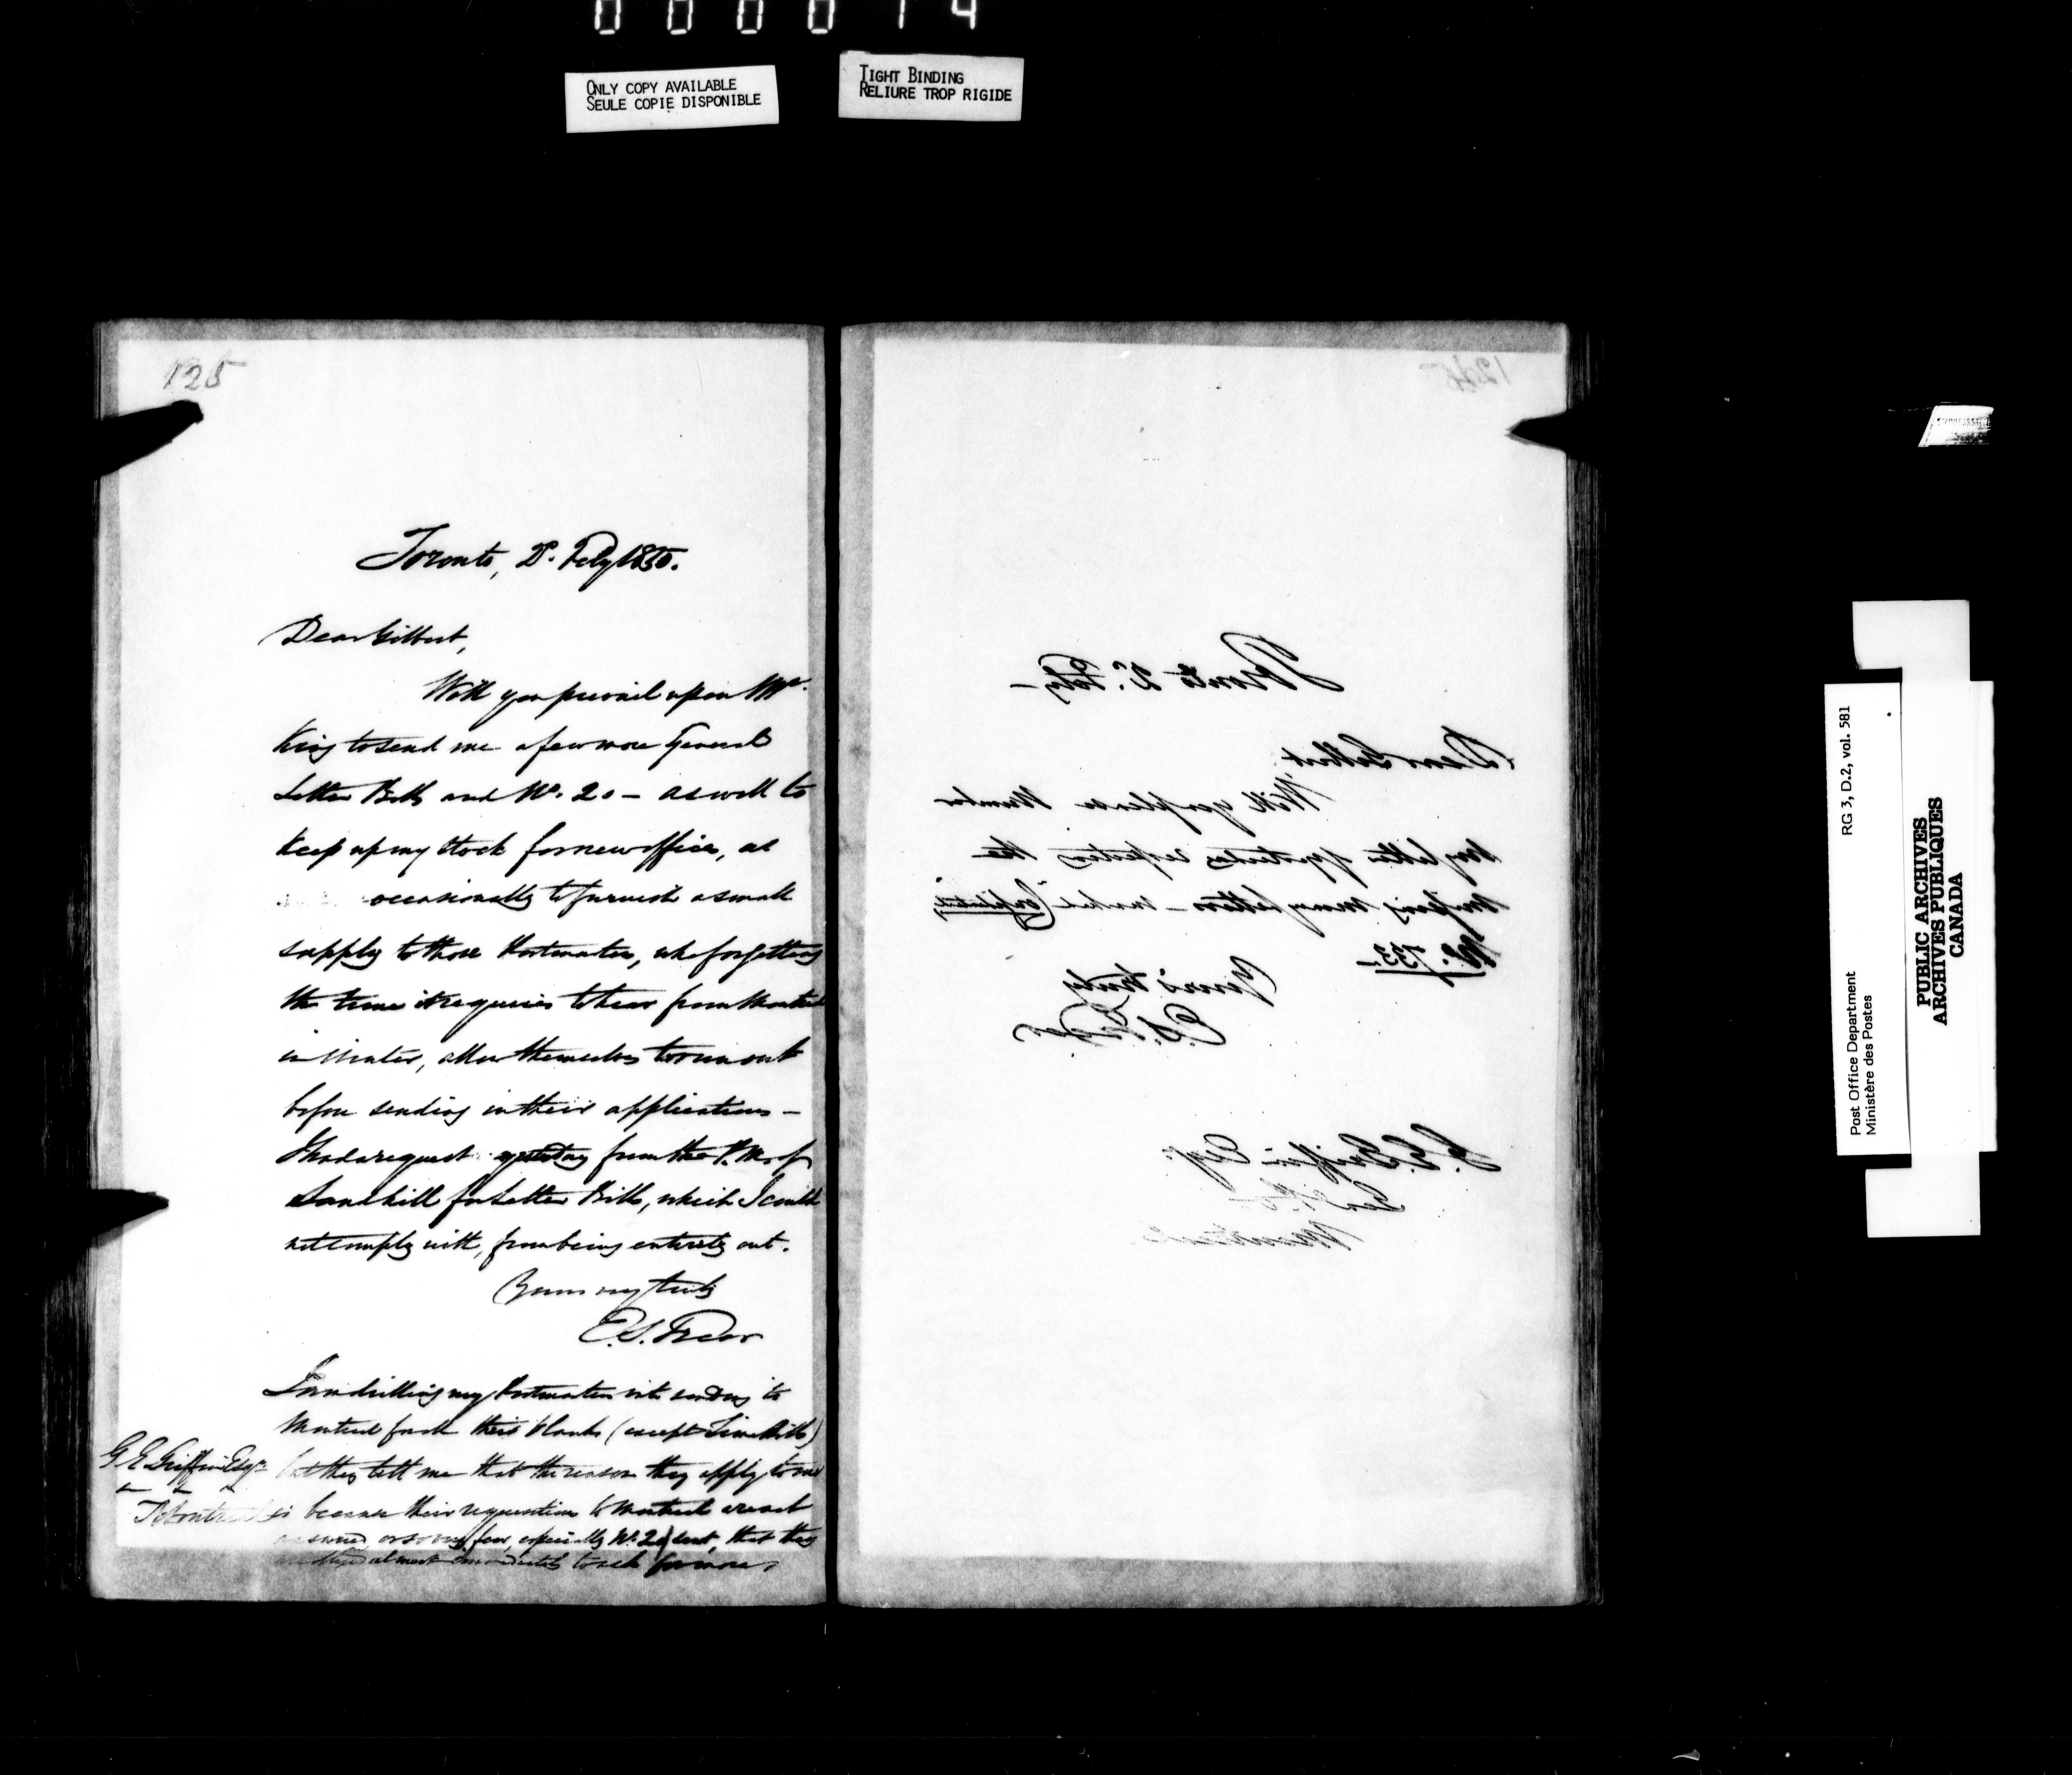 000014
ONLY COPY AVAILABLE
SEULE COPIE DISPONIBLE
TIGHT BINDING
RELIURE TROP RIGIDE
125
Toronto, 2d. Feby 1850.
Dear Gilbert,
Will you prevail upon Mr.
King to send me a few more General
Letter Bills and No. 20 — as well to
keep up my stock for new offices, as
occasionally to furnish a small
supply to those Postmasters, who forgetting
the time it requires to hear from Montreal
in Winter, allow themselves to run out
before sending in their applications —
I had a request yesterday from the P.M. of
Sandhill for Letter Bills, which I could
not comply with, from being entirely out.
Yours very truly
E.S. Freer
I am drilling my Postmasters into sending to
Montreal for all their blanks (except Time Bills)
but they tell me that the reason they apply to me
is because their requisitions to Montreal are not
answered, or so very few, especially No. 20 sent, that they
are obliged almost immediately to ask for more,
G E Griffin Esqr.
Montreal
Toronto 2d. Feby —
Dear Gilbert
Will you please number
my letter of yesterday respecting the
missing money letters — marked "Confidential"
No. 733. —
Yours truly
E.S. Freer
G. E. Griffin Esqr.
Genl P.O.
Montreal
RG 3, D.2, vol. 581
Post Office Department
Ministère des Postes
PUBLIC ARCHIVES
ARCHIVES PUBLIQUES
CANADA